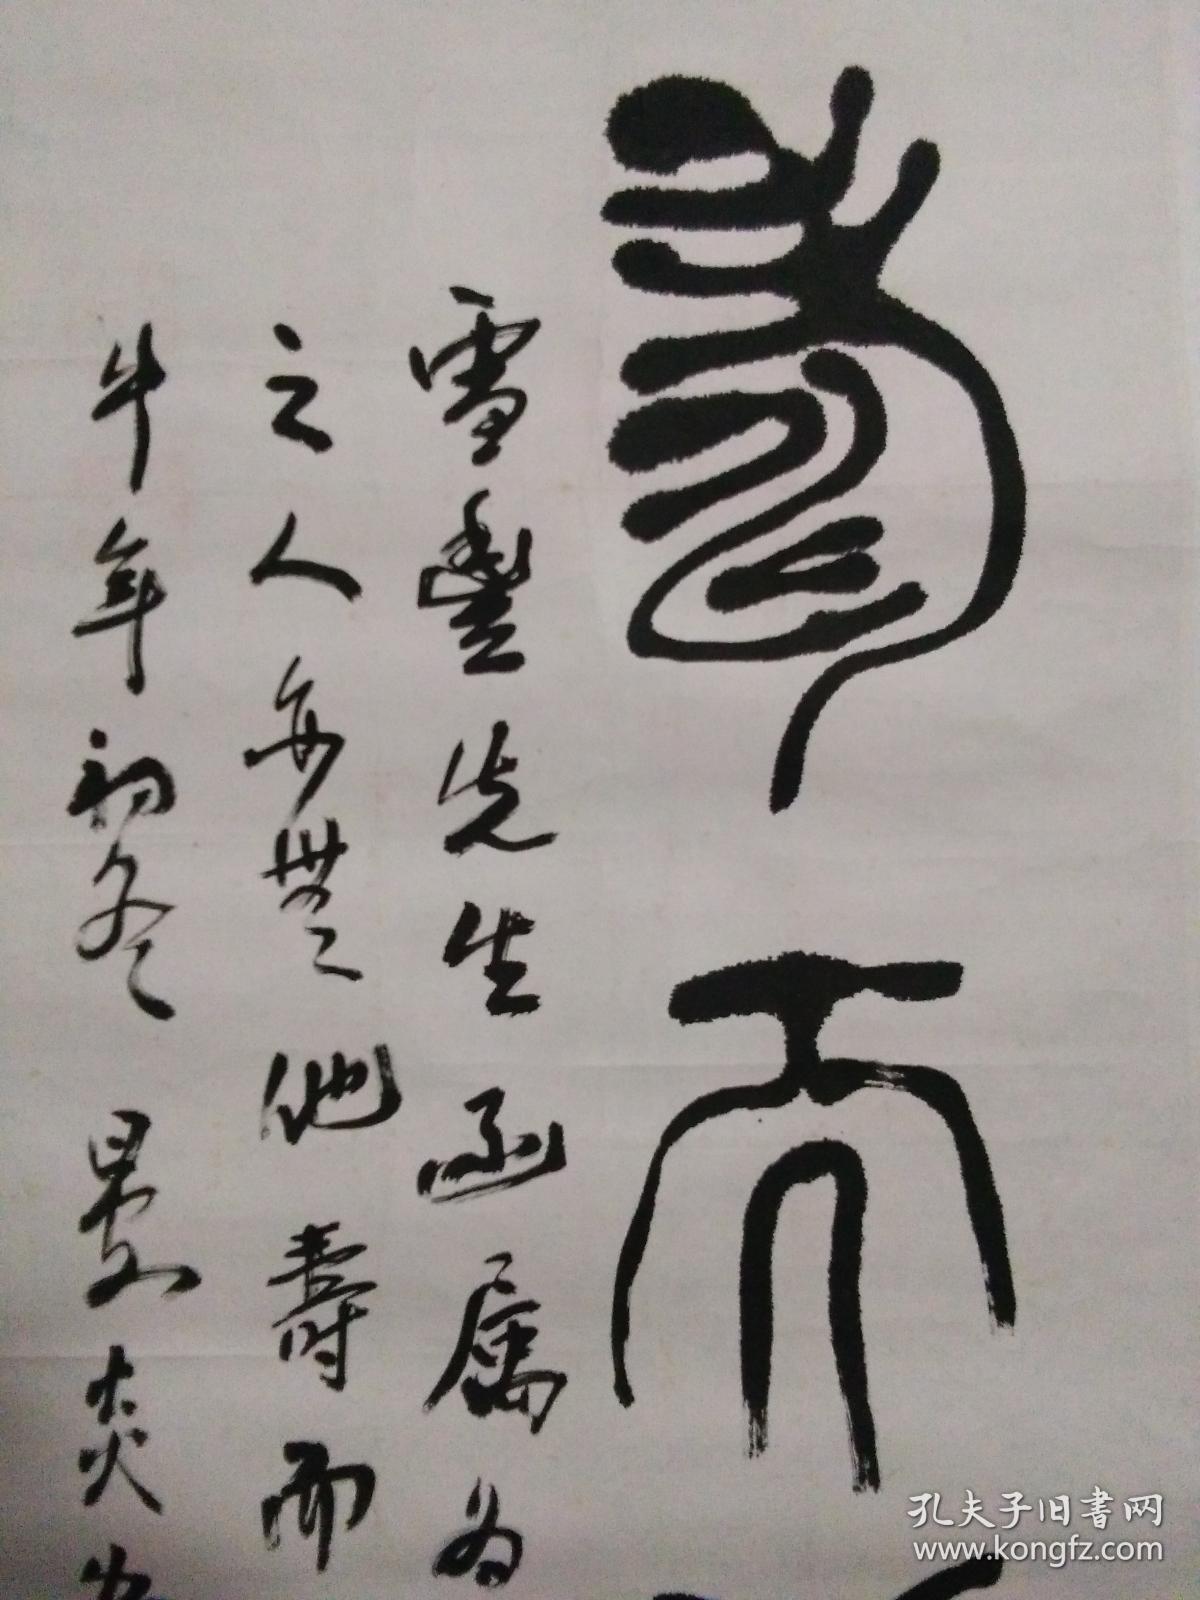 壽而
雪豐先生函属为
之人亦無他壽而
牛年初冬晏炎
孔夫子旧书网
www.kongfz.com